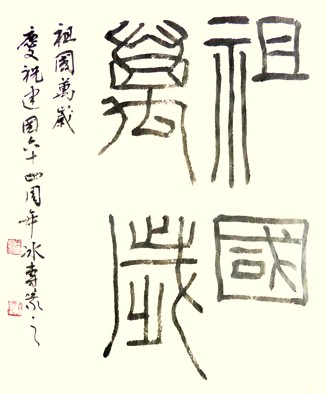 祖國
萬歲
祖國萬歲
慶祝建國六十四周年冰壽篆之